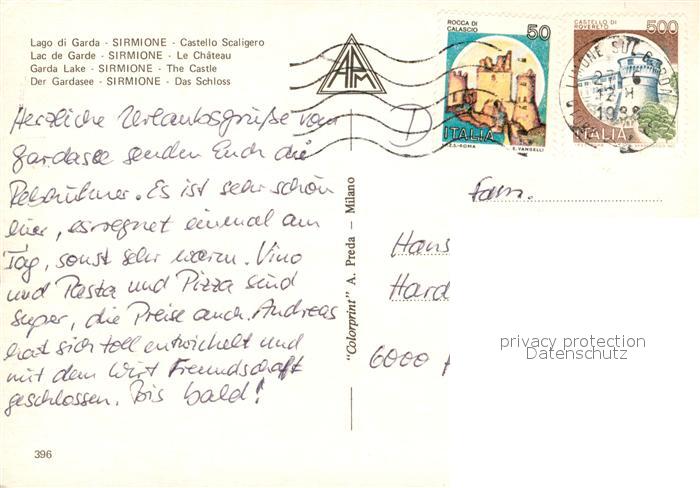 Lago di Garda - SIRMIONE - Castello Scaligero
Lac de Garde - SIRMIONE - Le Château
Garda Lake - SIRMIONE - The Castle
Der Gardasee - SIRMIONE - Das Schloss
APM
ROCCA DI
CALASCIO
50
ITALIA
I.P.Z.S.-ROMA
E. VANGELLI
CASTELLO DI
ROVERETO
500
ITALIA
LIMONE SUL GARDA
1988
Herzliche Urlaubsgrüße vom
Gardasee senden Euch die
Rebhühner. Es ist sehr schön
hier, es regnet einmal am
Tag, sonst sehr warm. Vino
und Pasta und Pizza sind
super, die Preise auch. Andreas
hat sich toll entwickelt und
mit dem Wirt Freundschaft
geschlossen. Bis bald!
"Colorprint" A. Preda - Milano
I
Fam.
Hans
Hard
6000
privacy protection
Datenschutz
396